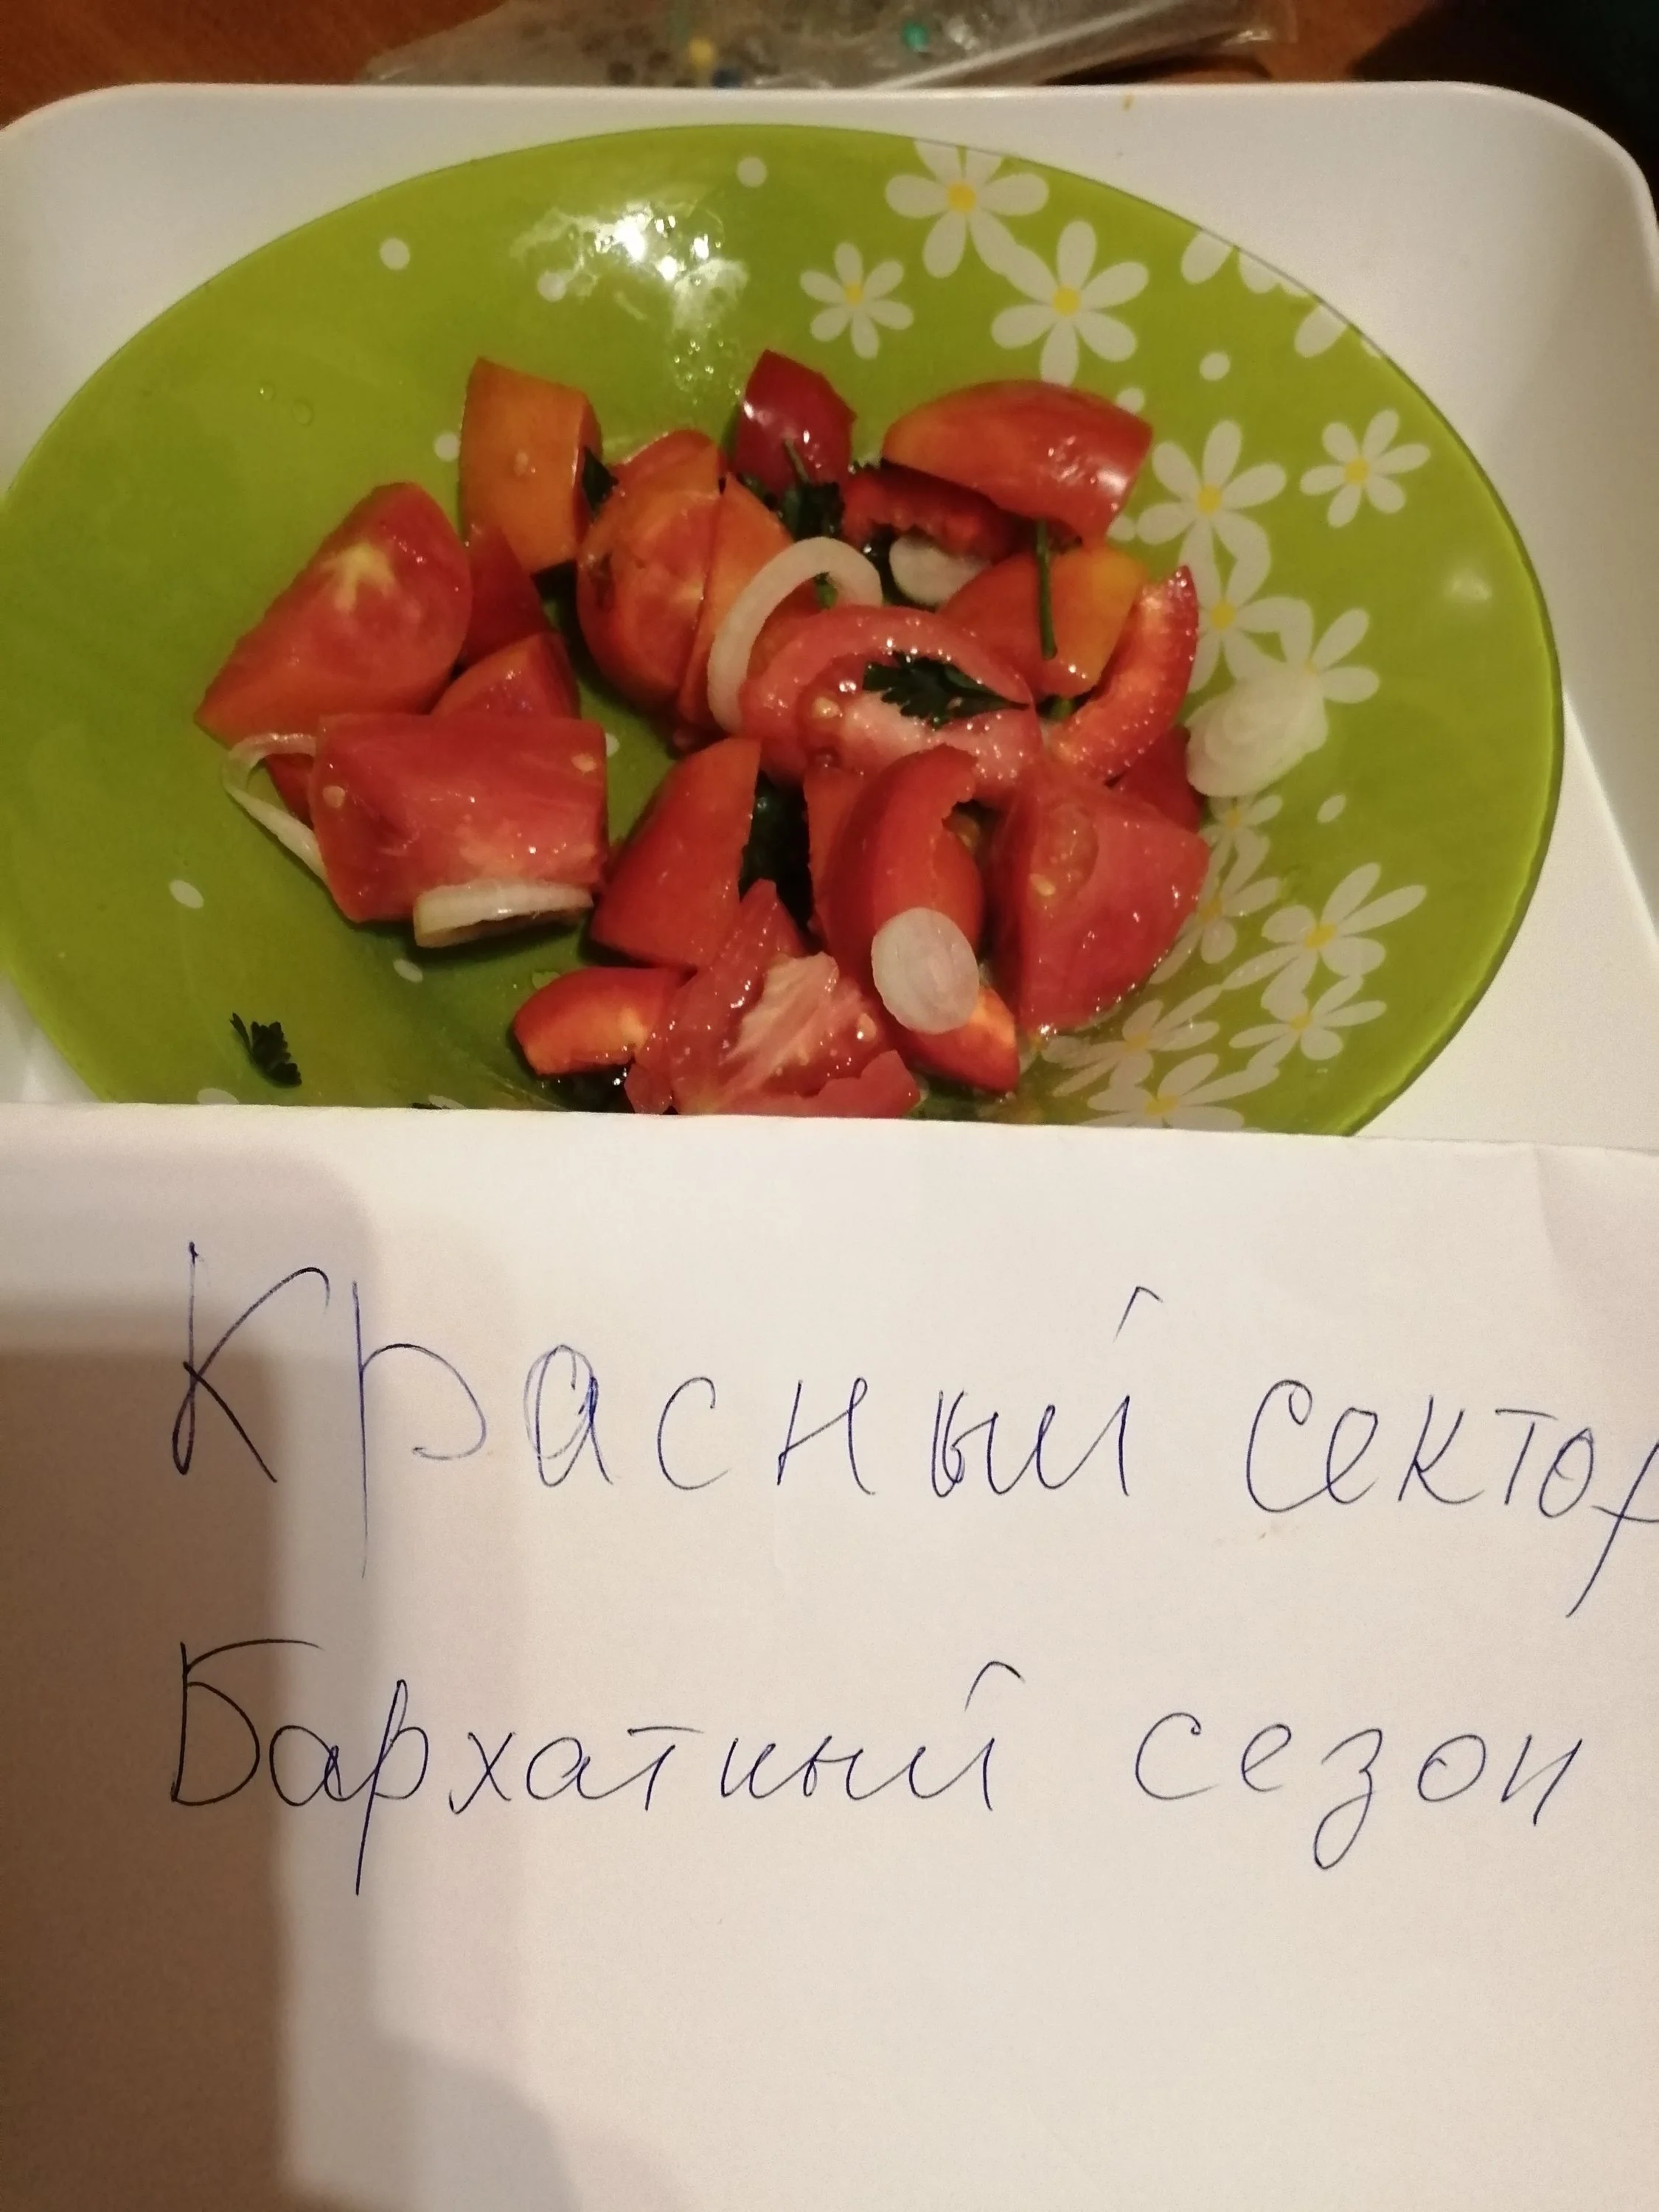 Красный сектор
Бархатный сезон